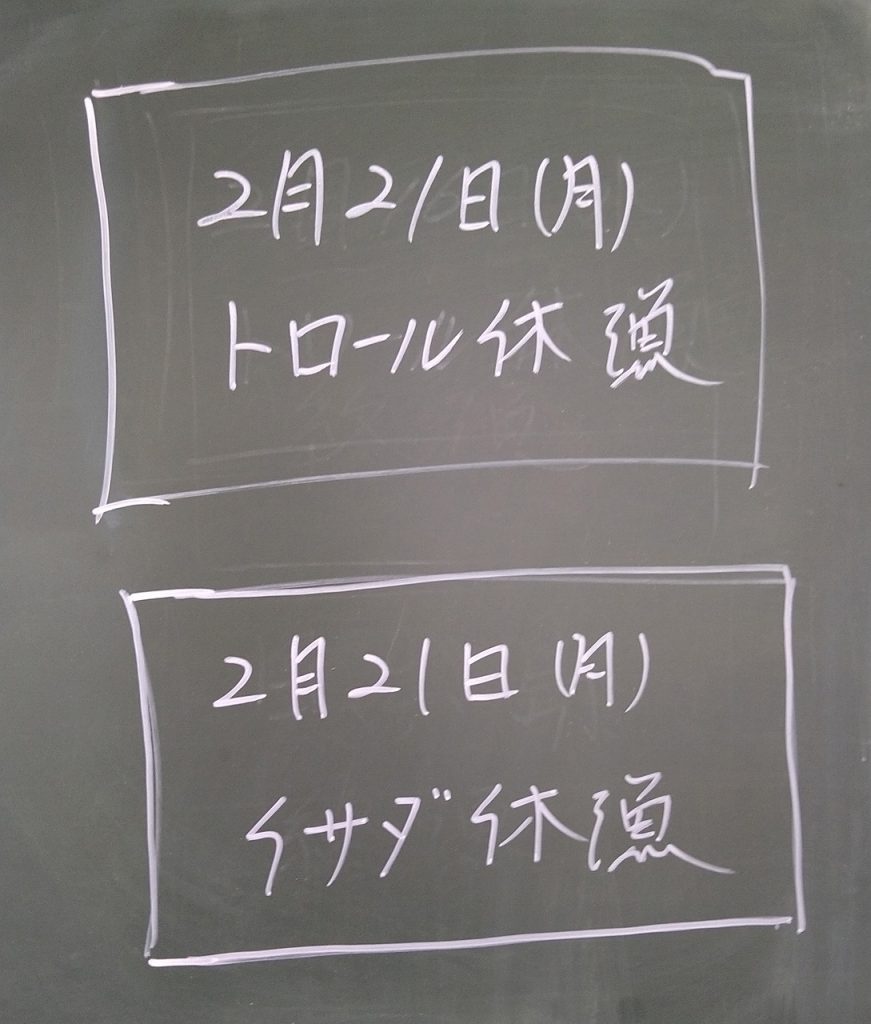 2月21日(月)
トロール休漁
2月21日(月)
イサダ休漁